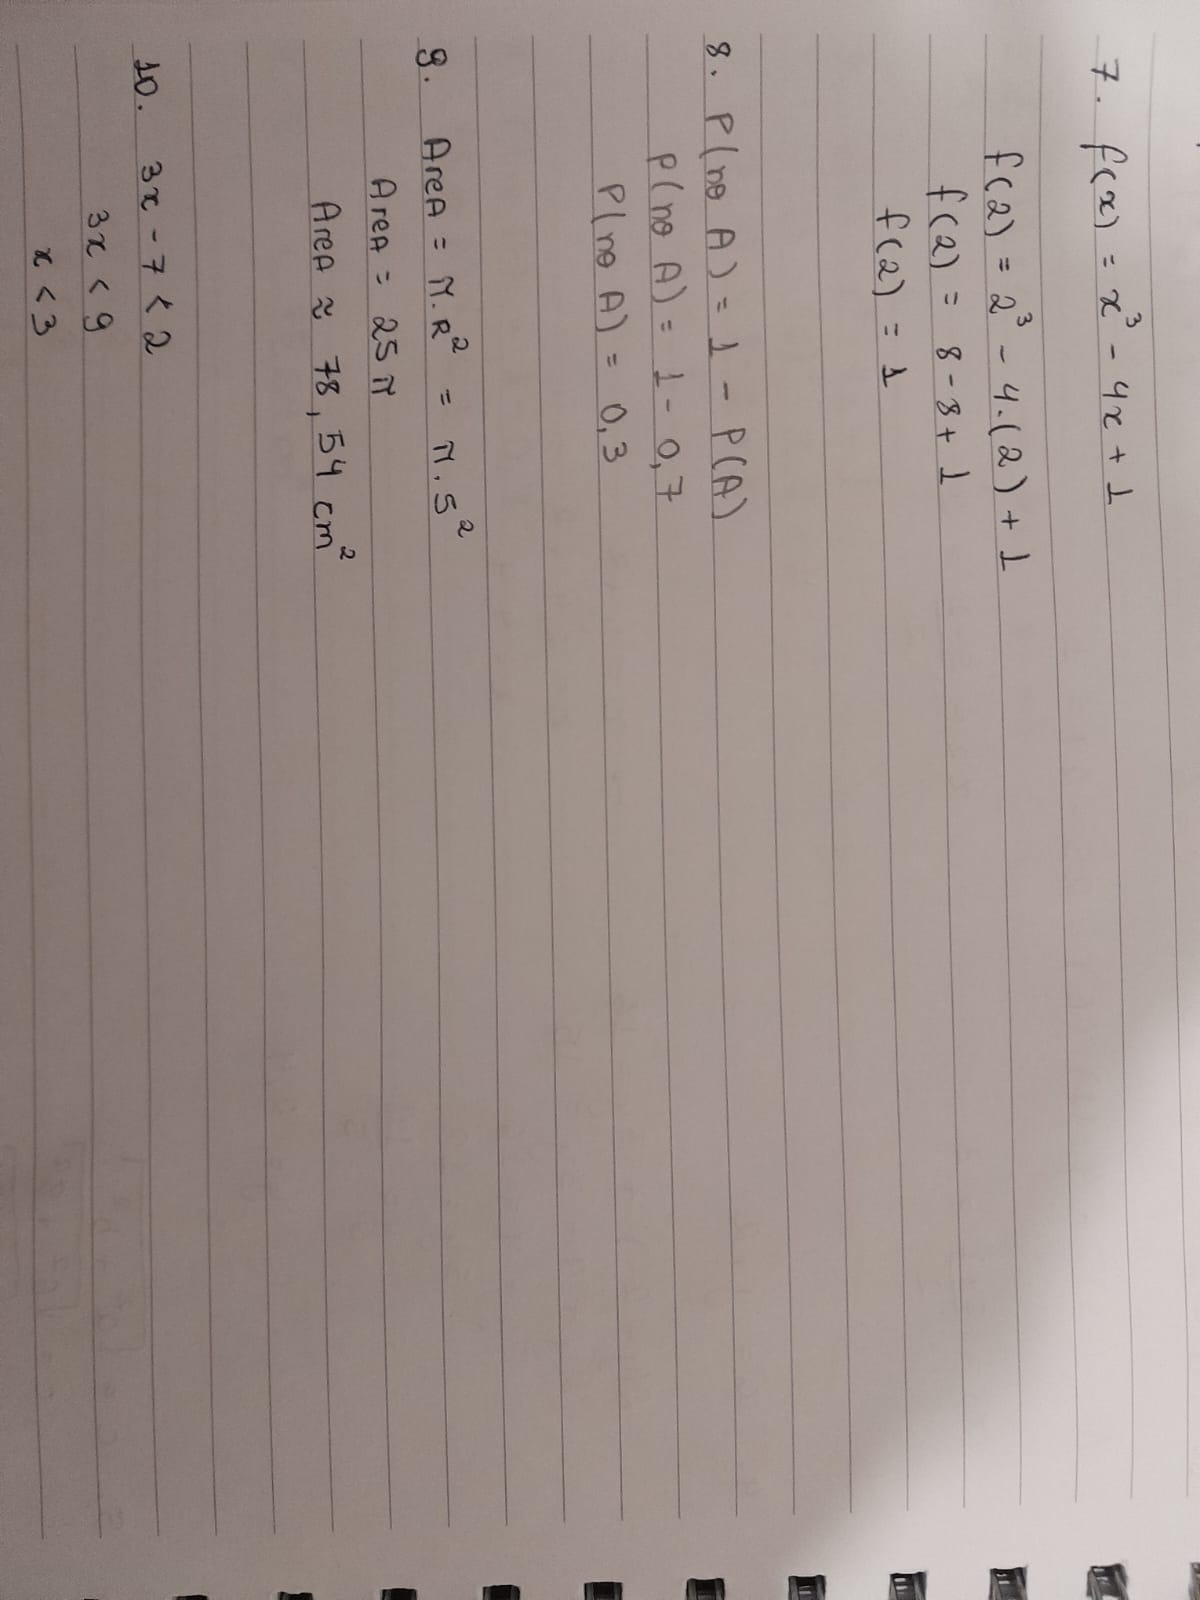 7. f(x) = x³ - 4x + 1
f(2) = 2³ - 4.(2) + 1
f(2) = 8 - 8 + 1
f(2) = 1
8. P(no A) = 1 - P(A)
P(no A) = 1 - 0,7
P(no A) = 0,3
9. AreA = π.R² = π.5²
AreA = 25π
AreA ≈ 78,54 cm²
10. 3x - 7 < 2
3x < 9
x < 3